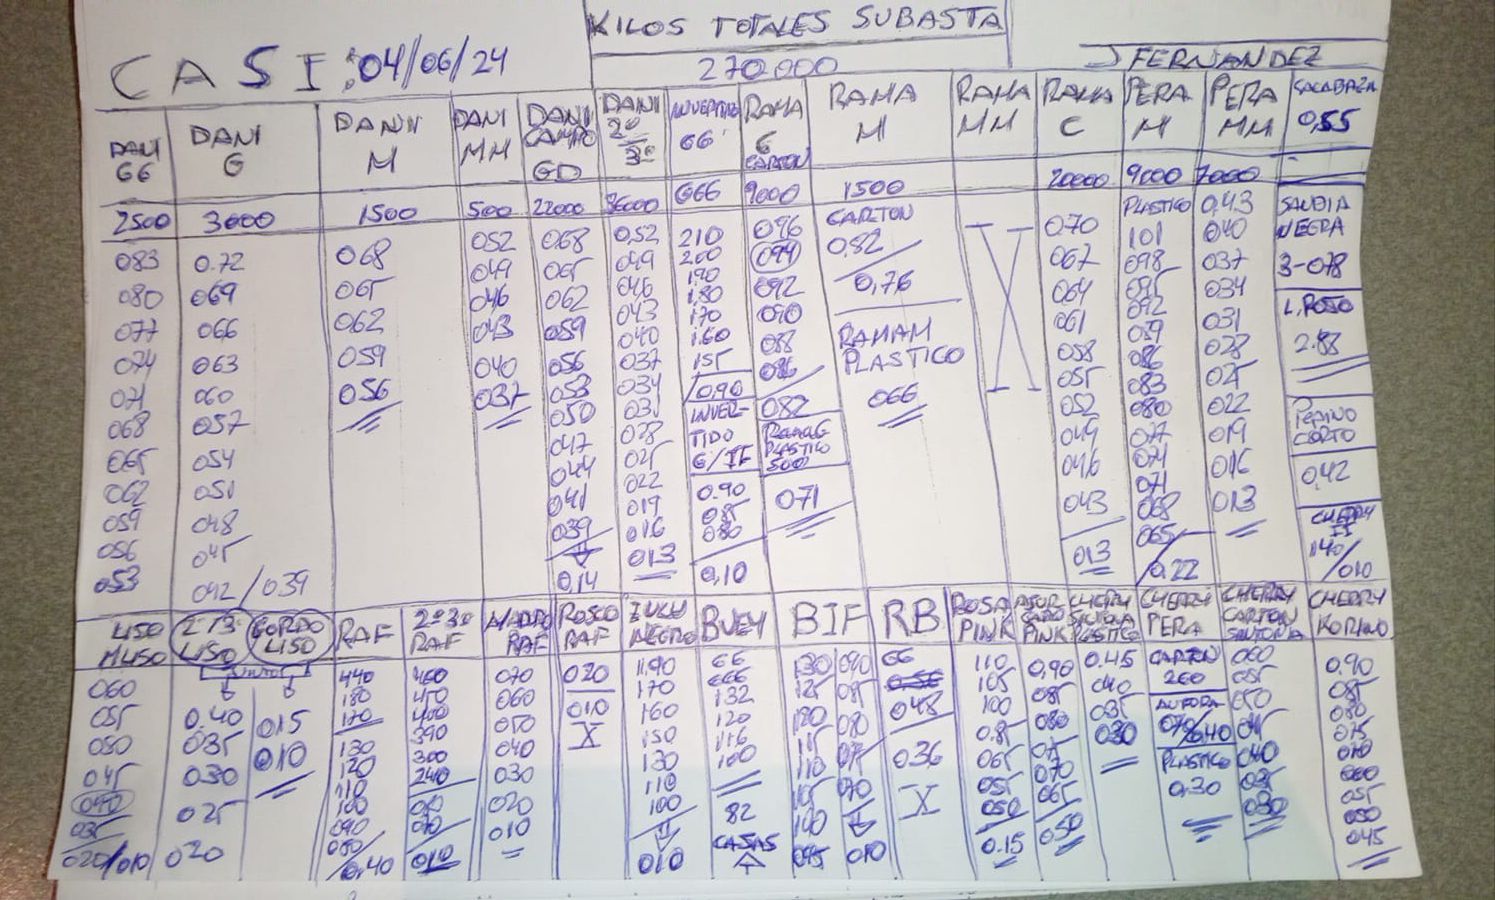 KILOS TOTALES SUBASTA
270000
CASI: 04/06/24
J FERNANDEZ
DANI GG
2500
083
080
077
074
071
068
065
062
059
056
053
DANI G
3600
0.72
069
066
063
060
057
054
051
048
045
042/039
DANI M
1500
068
065
062
059
056
DANI MM
500
052
049
046
043
040
037
DANI CAMPO GD
22000
068
065
062
059
056
053
050
047
044
041
039
0,14
DANI 2º 3º
36000
0.52
049
046
043
040
037
034
031
028
025
022
019
016
013
INVERTIDO GG
GGG
210
200
190
1.80
170
1.60
155
0,90
INVER-
TIDO
G/II
0.90
085
080
0,10
RAMA G CARTON
9000
096
094
092
090
088
086
082
RAMA G
PLASTICO
500
071
RAMA M
1500
CARTON
0.82
0,76
RAMA M
PLASTICO
066
RAMA MM
RAMA C
20000
070
067
064
061
058
055
052
049
046
043
013
PERA M
9000
PLASTICO
101
098
095
092
089
086
083
080
077
074
071
068
065
0.22
PERA MM
7000
0,43
040
037
034
031
028
025
022
019
016
013
CALABAZA
0,55
SANDIA
NEGRA
3-078
L. ROJO
2.88
PEPINO
CORTO
0,42
CHERRY
II
140/
010
LISO
M LISO
060
055
050
045
040
035
020/010
2º/3º
LISO
0.40
035
030
025
020
GORDO
LISO
015
010
RAF
440
180
170
130
120
110
100
090
080
0,40
2º 3º
RAF
460
450
400
390
300
240
010
MADURO
RAF
070
060
050
040
030
020
010
ROSCO
RAF
020
010
X
ZULU
NEGRO
1.90
170
160
150
130
110
100
010
BUEY
GG
GGG
132
120
116
100
82
CAJAS
BIF
130 090
125 085
120 080
115 075
110
105 070
100
095 010
RB
GG
048
036
X
ROSA
PINK
110
105
100
0.85
065
055
050
0.15
PINK
0,90
085
080
075
070
065
050
CHERRY
SINTONIA
PLASTICO
0.45
040
035
030
CHERRY
PERA
CARTON
260
AURORA
070/040
PLASTICO
0,30
CHERRY
CARTON
SINTONIA
060
055
050
045
040
035
030
CHERRY
KORINO
0.90
085
080
075
070
060
055
050
045